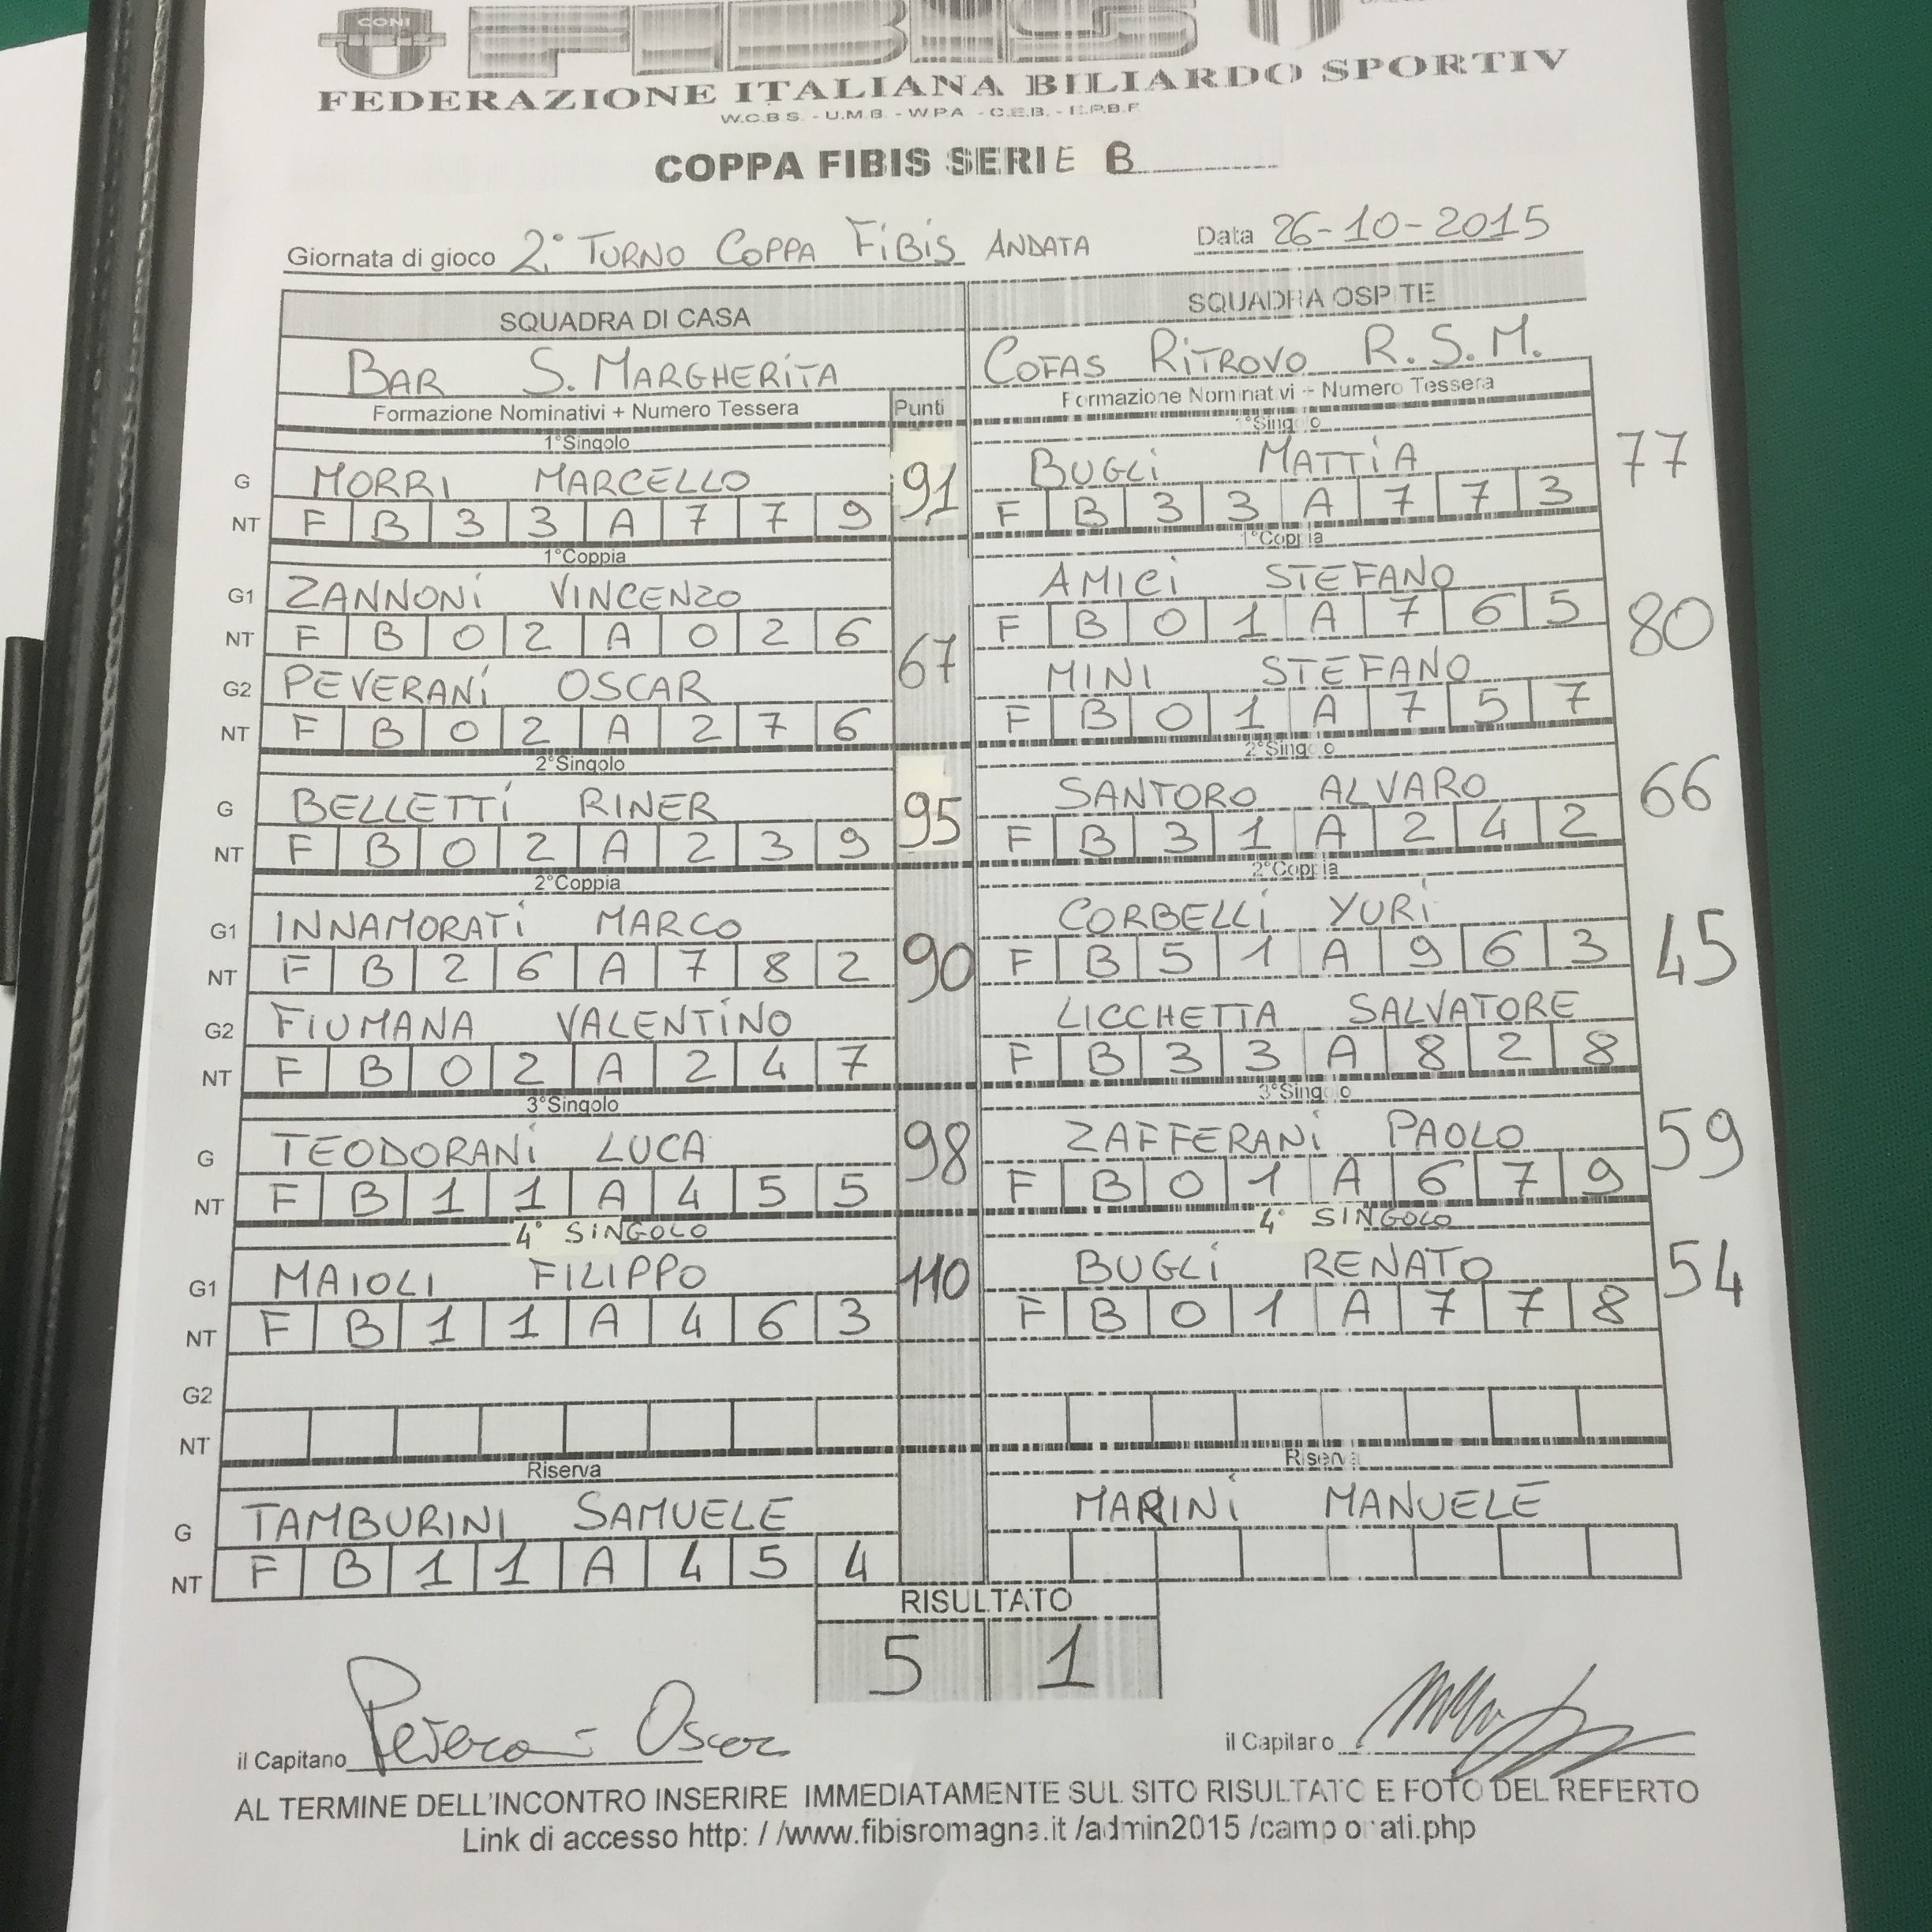 CONI
FIBIS
FEDERAZIONE ITALIANA BILIARDO SPORTIV
W.C.B.S. - U.M.B. - W.P.A. - C.E.B. - E.P.B.F.
COPPA FIBIS SERIE B
Giornata di gioco 2° TURNO COPPA FIBIS ANDATA Data 26-10-2015
SQUADRA DI CASA SQUADRA OSPITE
BAR S. MARGHERITA COFAS RITROVO R.S.M.
Formazione Nominativi + Numero Tessera Punti Formazione Nominativi + Numero Tessera
1°Singolo 1°Singolo
G MORRI MARCELLO 91 BUGLI MATTIA 77
NT F B 3 3 A 7 7 9 F B 3 3 A 7 7 3
1°Coppia 1°Coppia
G1 ZANNONI VINCENZO AMICI STEFANO
NT F B 0 2 A 0 2 6 67 F B 0 1 A 7 6 5 80
G2 PEVERANI OSCAR MINI STEFANO
NT F B 0 2 A 2 7 6 F B 0 1 A 7 5 7
2°Singolo 2°Singolo
G BELLETTI RINER 95 SANTORO ALVARO 66
NT F B 0 2 A 2 3 9 F B 3 1 A 2 4 2
2°Coppia 2°Coppia
G1 INNAMORATI MARCO CORBELLI YURI
NT F B 2 6 A 7 8 2 90 F B 5 1 A 9 6 3 45
G2 FIUMANA VALENTINO LICCHETTA SALVATORE
NT F B 0 2 A 2 4 7 F B 3 3 A 8 2 8
3°Singolo 3°Singolo
G TEODORANI LUCA 98 ZAFFERANI PAOLO 59
NT F B 1 1 A 4 5 5 F B 0 1 A 6 7 9
4° SINGOLO 4° SINGOLO
G1 MAIOLI FILIPPO 110 BUGLI RENATO 54
NT F B 1 1 A 4 6 3 F B 0 1 A 7 7 8
G2
NT
Riserva Riserva
G TAMBURINI SAMUELE MARINI MANUELE
NT F B 1 1 A 4 5 4
RISULTATO
5 1
il Capitano Peverani Oscar il Capitano
AL TERMINE DELL'INCONTRO INSERIRE IMMEDIATAMENTE SUL SITO RISULTATO E FOTO DEL REFERTO
Link di accesso http: / /www.fibisromagna.it /admin2015 /campionati.php